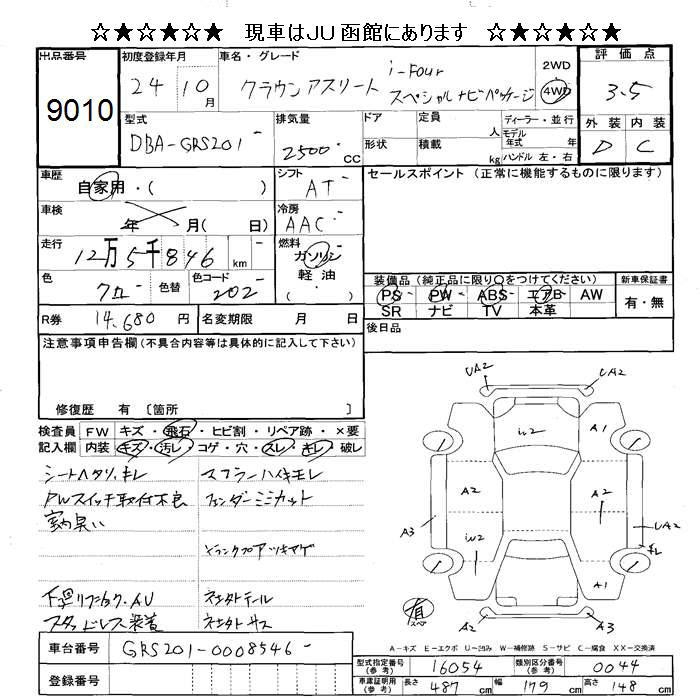 ☆★☆★☆★　現車はJU函館にあります　☆★☆★☆★
出品番号
9010
初度登録年月
24 10月
車名・グレード
クラウンアスリート i-Four スペシャルナビパッケージ
2WD
4WD
評価点
3.5
外装 内装
D C
型式
DBA-GRS201
排気量
2500cc
ドア
形状
定員 人
積載 kg
ディーラー・並行
モデル年式 年式
ハンドル 左・右
車歴
自家用・( )
シフト
AT
セールスポイント(正常に機能するものに限ります)
車検
年 月( 日)
冷房
AAC
走行
12万5千846 km
燃料
ガソリン
軽油
・( )
色
クロ
色替
色コード
202
装備品(純正品に限り○をつけてください)
PS PW ABS エアB AW
SR ナビ TV 本革
新車保証書
有・無
R券 14,680円
名変期限 月 日
後日品
注意事項申告欄(不具合内容等は具体的に記入して下さい)
修復歴 有〔箇所 〕
検査員記入欄
FW キズ・飛石・ヒビ割・リペア跡・×要
内装 キズ・汚レ・コゲ・穴・スレ・キレ・破レ
シートヘタリ、キレ
マフラーハイキモレ
PWスイッチ取付不良
フェンダーミミカット
室内臭い
トランクフロアツキアゲ
下廻リフジョク・AU
ネジタトテール
スタッドレス装着
UA2 UA2
A1
W2
A2
A2
A3
UA2
キレ
W2
A1
有
スペア
A2 A3
A－キズ E－エクボ U－凹み W－補修跡 S－サビ C－腐食 XX－交換済
車台番号
GRS201-0008546
登録番号
型式指定番号(参考)
16054
類別区分番号(参考)
0044
車庫証明用(参考)
長さ 487cm 幅 179cm 高さ 148cm